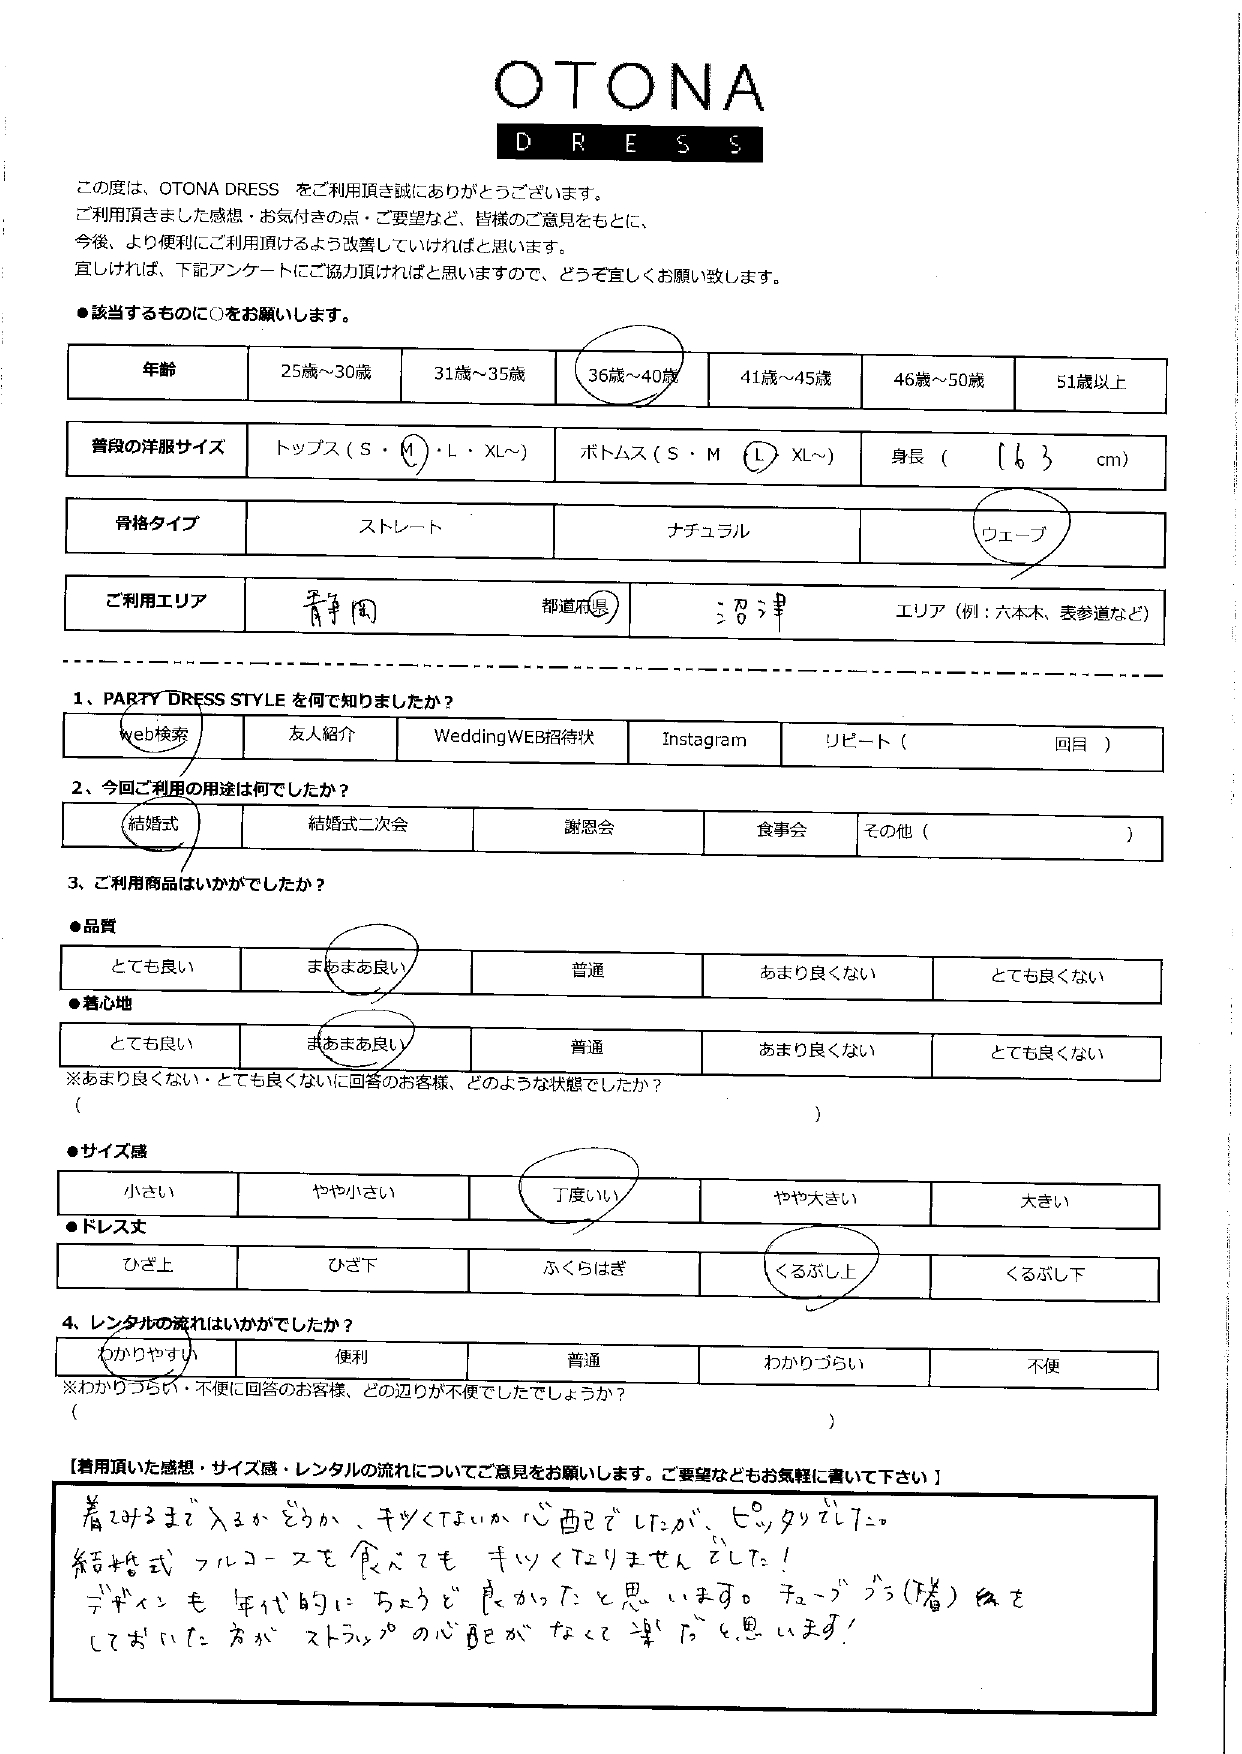 OTONA
DRESS
この度は、OTONA DRESS　をご利用頂き誠にありがとうございます。
ご利用頂きました感想・お気付きの点・ご要望など、皆様のご意見をもとに、
今後、より便利にご利用頂けるよう改善していければと思います。
宜しければ、下記アンケートにご協力頂ければと思いますので、どうぞ宜しくお願い致します。
●該当するものに○をお願いします。
年齢 25歳～30歳 31歳～35歳 36歳～40歳 41歳～45歳 46歳～50歳 51歳以上
普段の洋服サイズ トップス ( S ・ M ・ L ・ XL～) ボトムス ( S ・ M L XL～) 身長 ( 163 cm)
骨格タイプ ストレート ナチュラル ウェーブ
ご利用エリア 静岡 都道府県 沼津 エリア（例：六本木、表参道など）
1、PARTY DRESS STYLE を何で知りましたか？
web検索 友人紹介 WeddingWEB招待状 Instagram リピート（ 回目 ）
2、今回ご利用の用途は何でしたか？
結婚式 結婚式二次会 謝恩会 食事会 その他（ ）
3、ご利用商品はいかがでしたか？
●品質
とても良い まあまあ良い 普通 あまり良くない とても良くない
●着心地
とても良い まあまあ良い 普通 あまり良くない とても良くない
※あまり良くない・とても良くないに回答のお客様、どのような状態でしたか？
( )
●サイズ感
小さい やや小さい 丁度いい やや大きい 大きい
●ドレス丈
ひざ上 ひざ下 ふくらはぎ くるぶし上 くるぶし下
4、レンタルの流れはいかがでしたか？
わかりやすい 便利 普通 わかりづらい 不便
※わかりづらい・不便に回答のお客様、どの辺りが不便でしたでしょうか？
( )
【着用頂いた感想・サイズ感・レンタルの流れについてご意見をお願いします。ご要望などもお気軽に書いて下さい 】
着てみるまで入るかどうか、キツくてないか心配でしたが、ピッタリでした。
結婚式フルコースを食べてもキツくなりませんでした！
デザインも年代的にちょうど良かったと思います。チューブブラ(下着) を
しておいた方がストラップの心配がなくて楽だと思います！